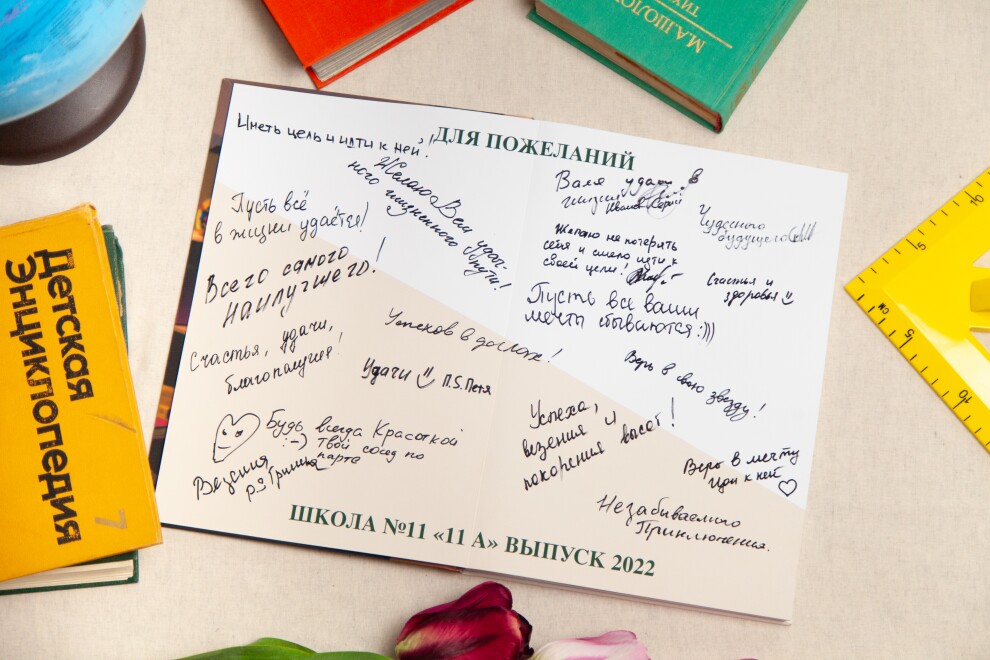 М.А.ШОЛОХ
ТИХ
ДЛЯ ПОЖЕЛАНИЙ
Иметь цель и идти к ней!
Желаю Вам удач-
ного жизненного
пути!
Пусть всё
в жизни удаётся!
Всего самого
наилучшего!
Счастья, удачи,
благополучия!
Успехов в
Удачи P.S. Петя
Будь всегда Красоткой
:-) Твой сосед по
парте
Везения
Гриша
Валя удачи в
жизни
Чудесного
будущего
Желаю не потерять
себя и смело идти к
своей цели!
Счастья и
здоровья
Пусть все ваши
мечты сбываются :)))
Верь в свою звезду!
Успеха,
везения и
покорения высот!
Верь в мечту
иди к ней
Незабываемого
Приключения.
ШКОЛА №11 «11 А» ВЫПУСК 2022
Детская
Энциклопедия
7
5
10
см
5
10